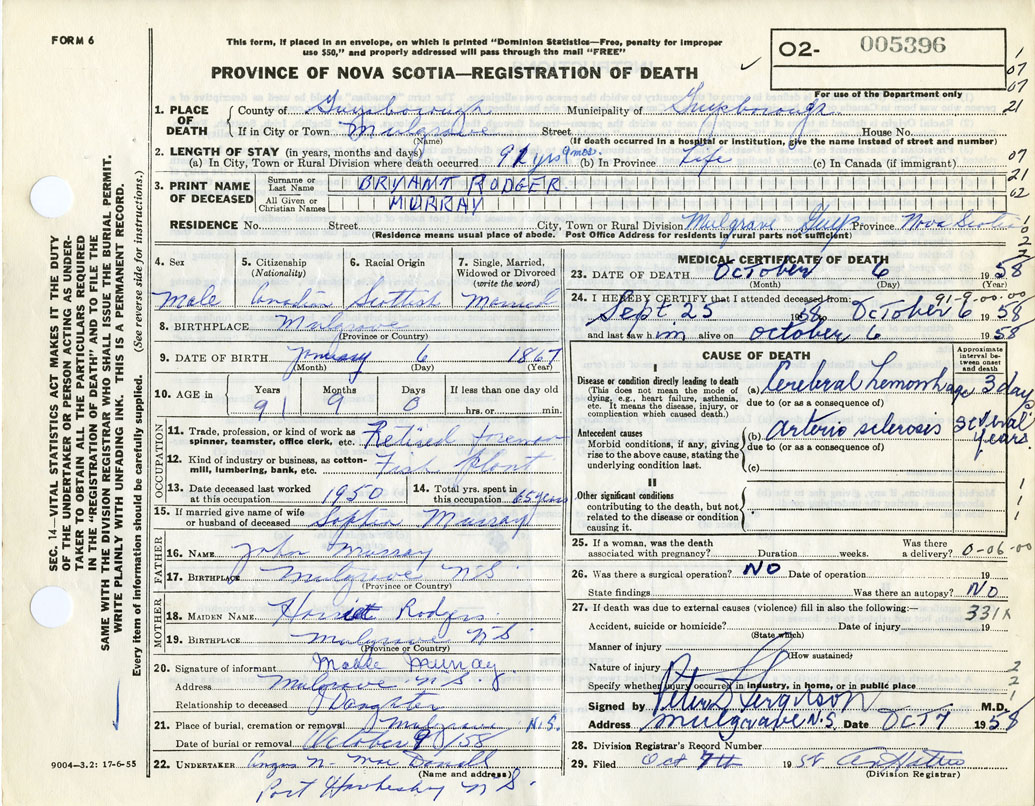 FORM 6
This form, if placed in an envelope, on which is printed "Dominion Statistics—Free, penalty for improper
use $50," and properly addressed will pass through the mail "FREE"
O2- 005396
For use of the Department only
PROVINCE OF NOVA SCOTIA—REGISTRATION OF DEATH
1. PLACE OF DEATH
County of Guysborough Municipality of Guysborough
If in City or Town Mulgrave Street House No.
(Name) (If death occurred in a hospital or institution, give the name instead of street and number)
2. LENGTH OF STAY (in years, months and days)
(a) In City, Town or Rural Division where death occurred 91 yrs 9 mos. (b) In Province Life (c) In Canada (if immigrant)
3. PRINT NAME OF DECEASED
Surname or Last Name BRYANT RODGER
All Given or Christian Names MURRAY
RESIDENCE No. Street City, Town or Rural Division Mulgrave Guys Province Nova Scotia
(Residence means usual place of abode. Post Office Address for residents in rural parts not sufficient)
4. Sex Male
5. Citizenship (Nationality) Canadian
6. Racial Origin Scottish
7. Single, Married, Widowed or Divorced (write the word) Married
8. BIRTHPLACE Mulgrave
(Province or Country)
9. DATE OF BIRTH January 6 1867
(Month) (Day) (Year)
10. AGE in Years 91 Months 9 Days 0 If less than one day old hrs. or min.
OCCUPATION
11. Trade, profession, or kind of work as spinner, teamster, office clerk, etc. Retired Foreman
12. Kind of industry or business, as cotton-mill, lumbering, bank, etc. Fish Plant
13. Date deceased last worked at this occupation 1950
14. Total yrs. spent in this occupation 65 years
15. If married give name of wife or husband of deceased Murray
FATHER
16. NAME John Murray
17. BIRTHPLACE Mulgrave NS
(Province or Country)
MOTHER
18. MAIDEN NAME Harriet Rodgers
19. BIRTHPLACE Mulgrave NS.
(Province or Country)
20. Signature of informant Murray
Address Mulgrave N.S.
Relationship to deceased Daughter
21. Place of burial, cremation or removal Mulgrave N.S.
Date of burial or removal October 9/58
22. UNDERTAKER Angus N. Mac Donald
(Name and address)
Port Hawkesbury N S.
9004-3.2: 17-6-55
MEDICAL CERTIFICATE OF DEATH
23. DATE OF DEATH October 6 1958
(Month) (Day) (Year)
91-9-00-00
24. I HEREBY CERTIFY that I attended deceased from:
Sept 25 1958 October 6 1958
and last saw him alive on October 6 1958
CAUSE OF DEATH
Approximate interval between onset and death
I
Disease or condition directly leading to death
(This does not mean the mode of dying, e.g., heart failure, asthenia, etc. It means the disease, injury, or complication which caused death.)
(a) Cerebral hemorrhage 3 days
due to (or as a consequence of)
Antecedent causes
Morbid conditions, if any, giving rise to the above cause, stating the underlying condition last.
(b) arterio sclerosis several years
due to (or as a consequence of)
(c)
II
Other significant conditions
contributing to the death, but not related to the disease or condition causing it.
25. If a woman, was the death associated with pregnancy? Duration weeks. Was there a delivery? 0-06-00
26. Was there a surgical operation? NO Date of operation 19
State findings Was there an autopsy? NO
27. If death was due to external causes (violence) fill in also the following:—
331X
Accident, suicide or homicide? Date of injury 19
(State which)
Manner of injury
(How sustained)
Nature of injury
Specify whether injury occurred in industry, in home, or in public place
Signed by Peter Ferguson M.D.
Address Mulgrave N.S. Date OCT 7 1958
28. Division Registrar's Record Number
29. Filed Oct 7th 1958
(Division Registrar)
1
07
07
21
07
21
02
0
2
2
1
1
1
1
2
2
1
SEC. 14—VITAL STATISTICS ACT MAKES IT THE DUTY
OF THE UNDERTAKER OR PERSON ACTING AS UNDER-
TAKER TO OBTAIN ALL THE PARTICULARS REQUIRED
IN THE "REGISTRATION OF DEATH" AND TO FILE THE
SAME WITH THE DIVISION REGISTRAR WHO SHALL ISSUE THE BURIAL PERMIT.
WRITE PLAINLY WITH UNFADING INK. THIS IS A PERMANENT RECORD.
Every item of information should be carefully supplied. (See reverse side for instructions.)